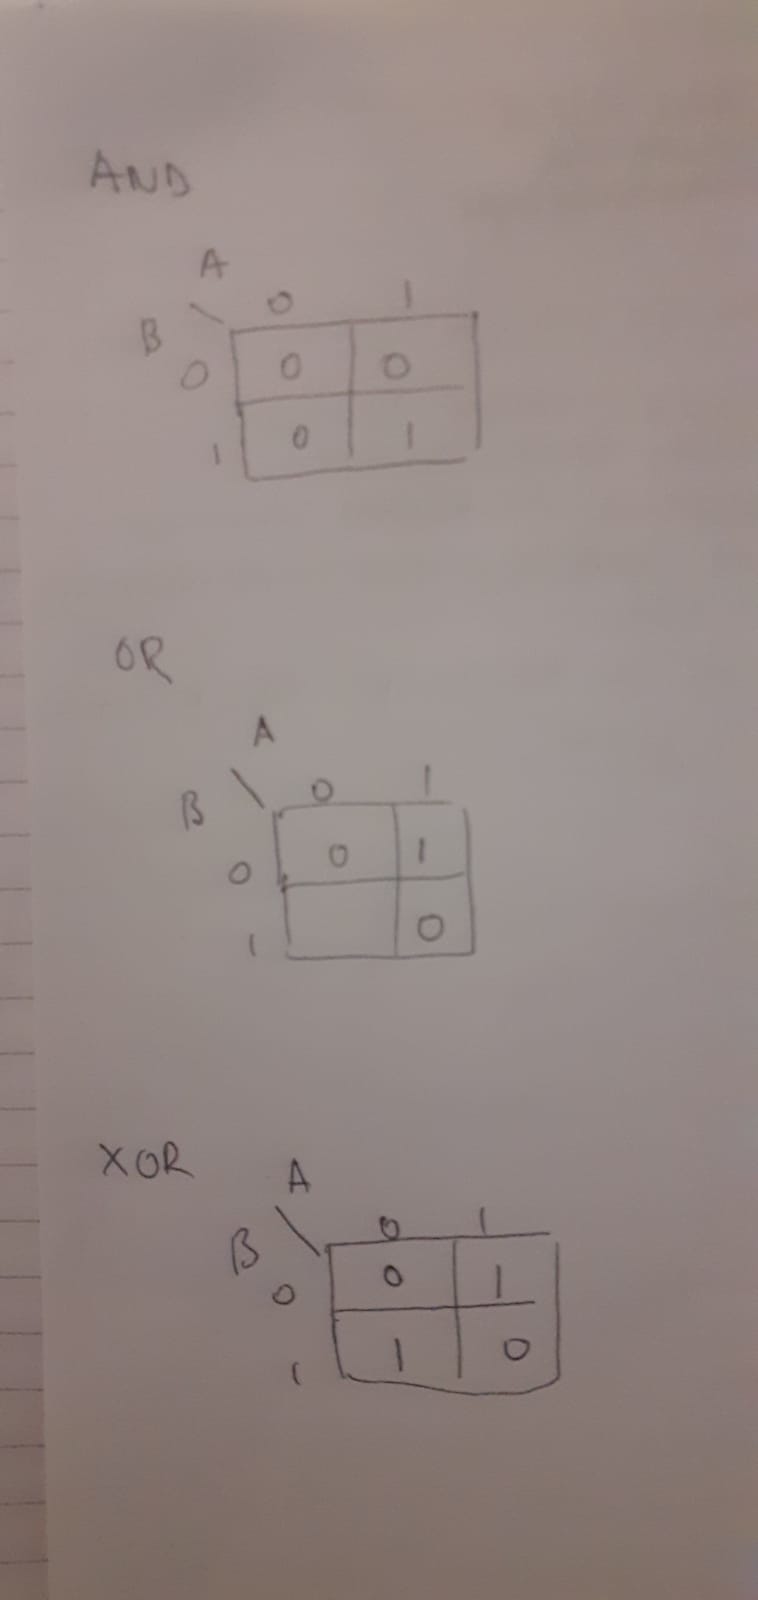 AND
A
B \ 0 1
0 0 0
1 0 1
OR
A
B \ 0 1
0 0 1
1 0
XOR
A
B \ 0 1
0 0 1
1 1 0